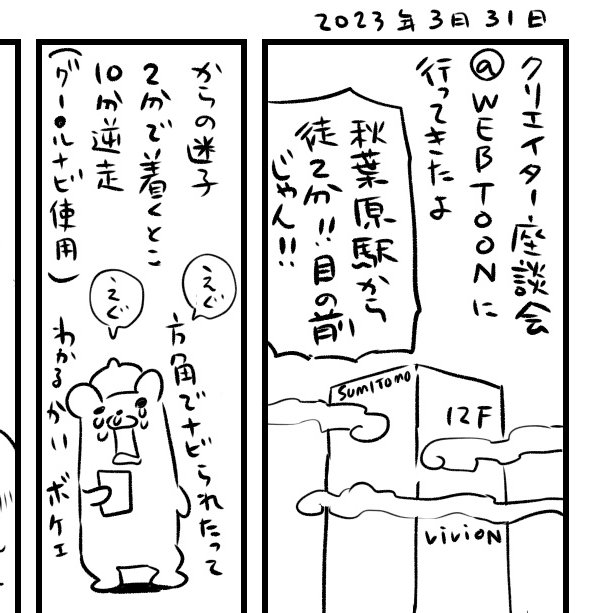 2023年3月31日
クリエイター座談会
@WEBTOONに
行ってきたよ
秋葉原駅から
徒2分!!目の前
じゃん!!
SUMITOMO
12F
LIVION
からの迷子
2分で着くとこ
10分逆走
(グールナビ使用)
えぐ
えぐ
方角でナビられたって
わかるかい ボケェ